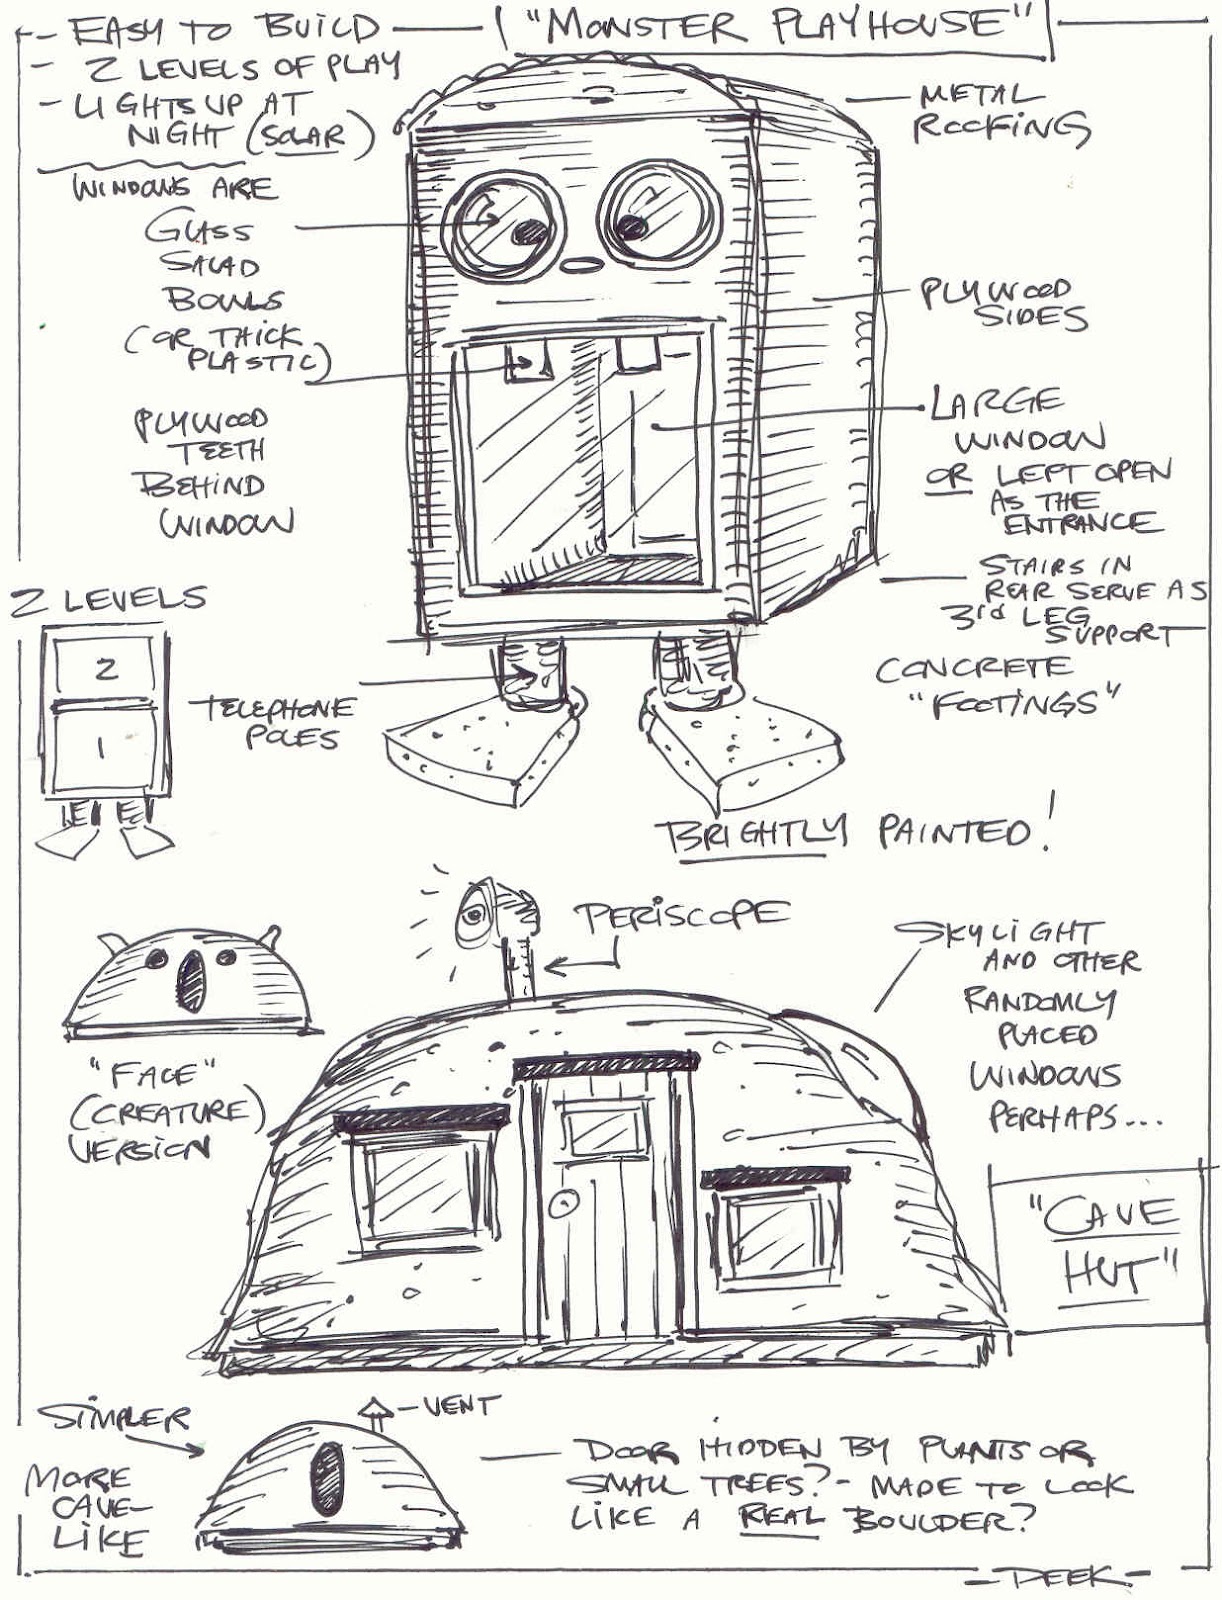 "MONSTER PLAYHOUSE"
- EASY TO BUILD
- 2 LEVELS OF PLAY
- LIGHTS UP AT
NIGHT (SOLAR)
WINDOWS ARE
GLASS
SALAD
BOWLS
(OR THICK
PLASTIC)
PLYWOOD
TEETH
BEHIND
WINDOW
METAL
ROOFING
PLYWOOD
SIDES
LARGE
WINDOW
OR LEFT OPEN
AS THE
ENTRANCE
STAIRS IN
REAR SERVE AS
3rd LEG
SUPPORT
CONCRETE
"FOOTINGS"
2 LEVELS
2
1
TELEPHONE
POLES
BRIGHTLY PAINTED!
PERISCOPE
SKYLIGHT
AND OTHER
RANDOMLY
PLACED
WINDOWS
PERHAPS...
"FACE"
(CREATURE)
VERSION
"CAVE
HUT"
SIMPLER
MORE
CAVE-
LIKE
- VENT
DOOR HIDDEN BY PLANTS OR
SMALL TREES? - MADE TO LOOK
LIKE A REAL BOULDER?
- DEEK -